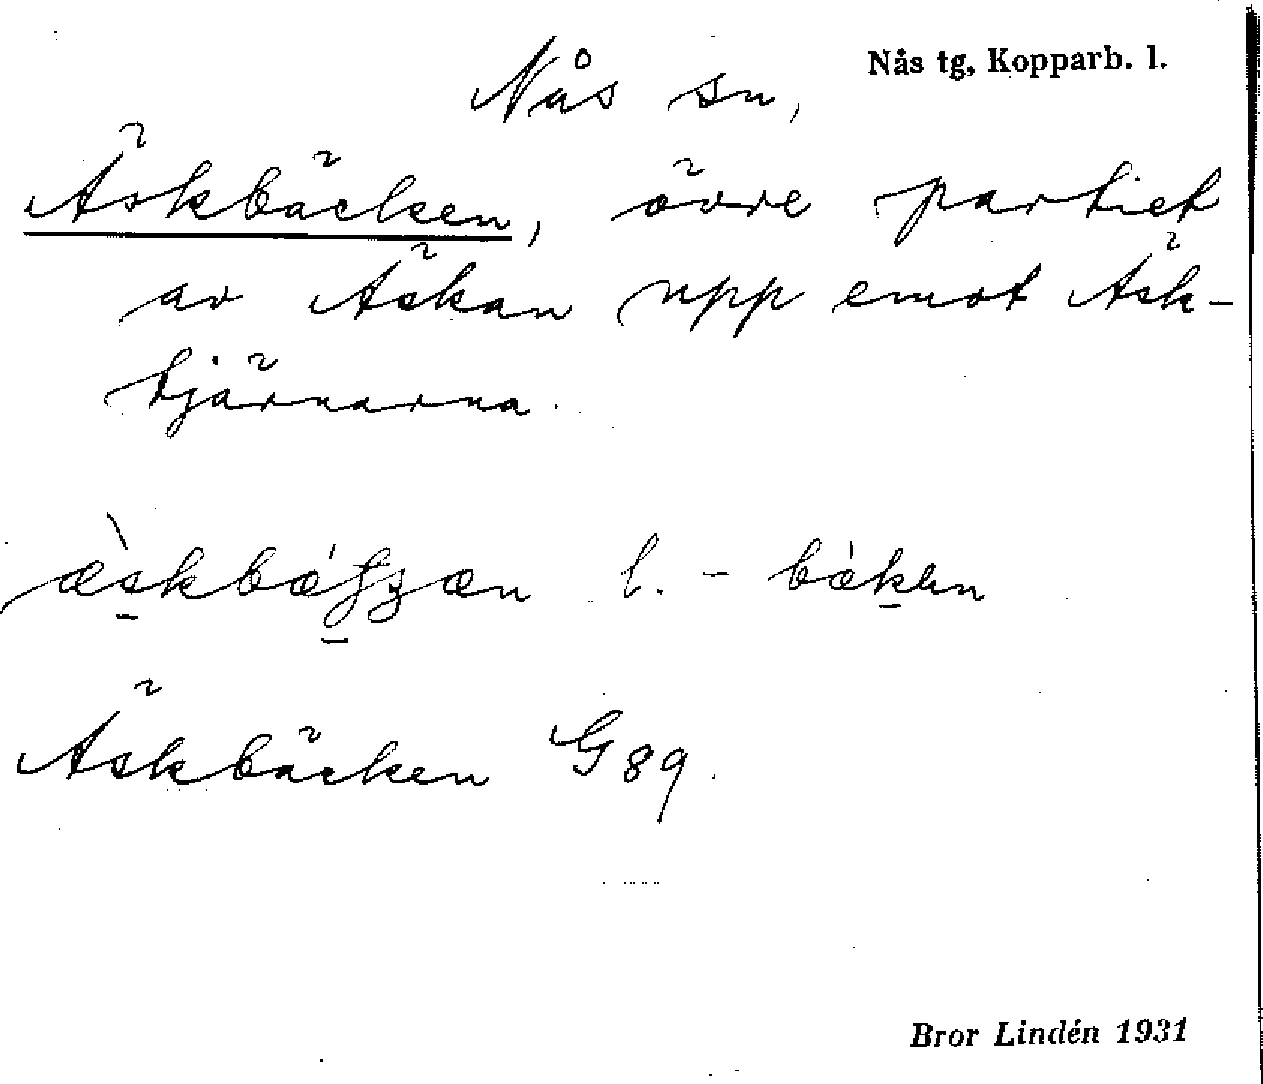 Nås tg, Kopparb. l.
Nås sn,
Äskbäcken, övre partiet
av Äskan upp emot Äsk-
tjärnarna.
l.
Äskbäcken G 89.
Bror Lindén 1931